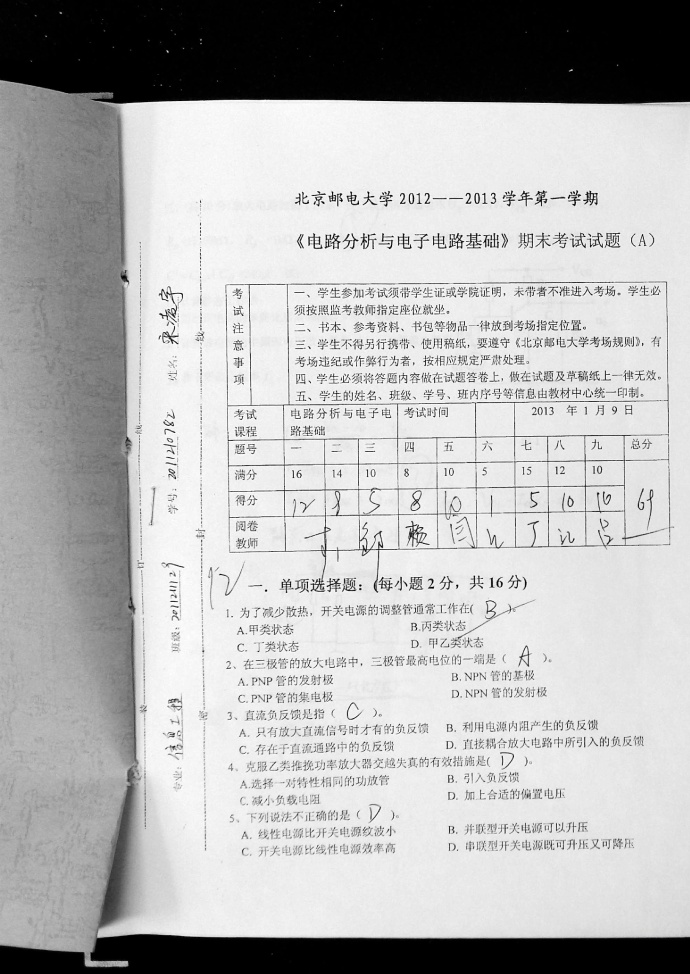 北京邮电大学2012——2013学年第一学期
《电路分析与电子电路基础》期末考试试题（A）
考试注意事项
一、学生参加考试须带学生证或学院证明，未带者不准进入考场。学生必
须按照监考教师指定座位就坐。
二、书本、参考资料、书包等物品一律放到考场指定位置。
三、学生不得另行携带、使用稿纸，要遵守《北京邮电大学考场规则》，有
考场违纪或作弊行为者，按相应规定严肃处理。
四、学生必须将答题内容做在试题答卷上，做在试题及草稿纸上一律无效。
五、学生的姓名、班级、学号、班内序号等信息由教材中心统一印制。
考试课程 电路分析与电子电路基础 考试时间 2013 年 1 月 9 日
题号 一 二 三 四 五 六 七 八 九 总分
满分 16 14 10 8 10 5 15 12 10
得分 12 8 5 8 10 1 5 10 10 69
阅卷教师
12
一．单项选择题：(每小题 2 分，共 16 分)
1. 为了减少散热，开关电源的调整管通常工作在( B )。
A.甲类状态 B.丙类状态
C. 丁类状态 D. 甲乙类状态
2、在三极管的放大电路中，三极管最高电位的一端是（ A ）。
A. PNP 管的发射极 B. NPN 管的基极
C. PNP 管的集电极 D. NPN 管的发射极
3、直流负反馈是指（ C ）。
A. 只有放大直流信号时才有的负反馈 B. 利用电源内阻产生的负反馈
C. 存在于直流通路中的负反馈 D. 直接耦合放大电路中所引入的负反馈
4、克服乙类推挽功率放大器交越失真的有效措施是( D )。
A.选择一对特性相同的功放管 B. 引入负反馈
C. 减小负载电阻 D. 加上合适的偏置电压
5、下列说法不正确的是（ D ）。
A. 线性电源比开关电源纹波小 B. 并联型开关电源可以升压
C. 开关电源比线性电源效率高 D. 串联型开关电源既可升压又可降压
专业：信息工程 班级：2011211129 学号：2011210782 姓名：
装 订 线
密 封 线